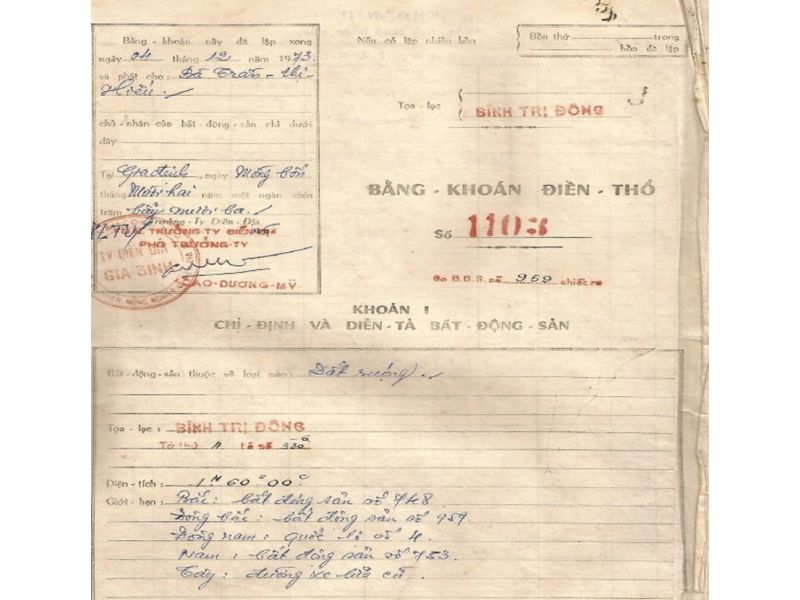 Bằng - khoán này đã lập xong
ngày 04 tháng 12 năm 1973
và phát cho: Bà Trần - thị -
Hiếu. /
chủ - nhân của bất - động - sản chỉ dưới
đây
Tại Gia định, ngày Mồng bốn
tháng Mười hai năm một ngàn chín
trăm bẩy mươi ba. /
Trưởng - Ty Điền - Địa
TRƯỞNG TY ĐIỀN ĐỊA
PHÓ TRƯỞNG - TY
TY ĐIỀN ĐỊA
GIA - ĐỊNH
ĐÀO - DƯƠNG - MỸ
Nếu có lập nhiều bổn
Bổn thứ trong
bổn đã lập
Tọa - lạc
BÌNH TRỊ ĐÔNG
BẰNG - KHOÁN ĐIỀN - THỔ
Số 1103
Do B.Đ.S số 959 chiết ra
KHOẢN I
CHỈ - ĐỊNH VÀ DIỄN - TẢ BẤT - ĐỘNG - SẢN
Bất - động - sản thuộc về loại nào: Đất ruộng. /
Tọa - lạc: BÌNH TRỊ ĐÔNG
Tờ thứ A Lô số 330
Diện - tích: 1H 60a 00c
Giới - hạn: Bắc: bất động sản số 748
Đông bắc: bất động sản số 959.
Đông nam: quốc lộ số 4.
Nam: bất động sản số 753.
Tây: đường xe lửa cũ.